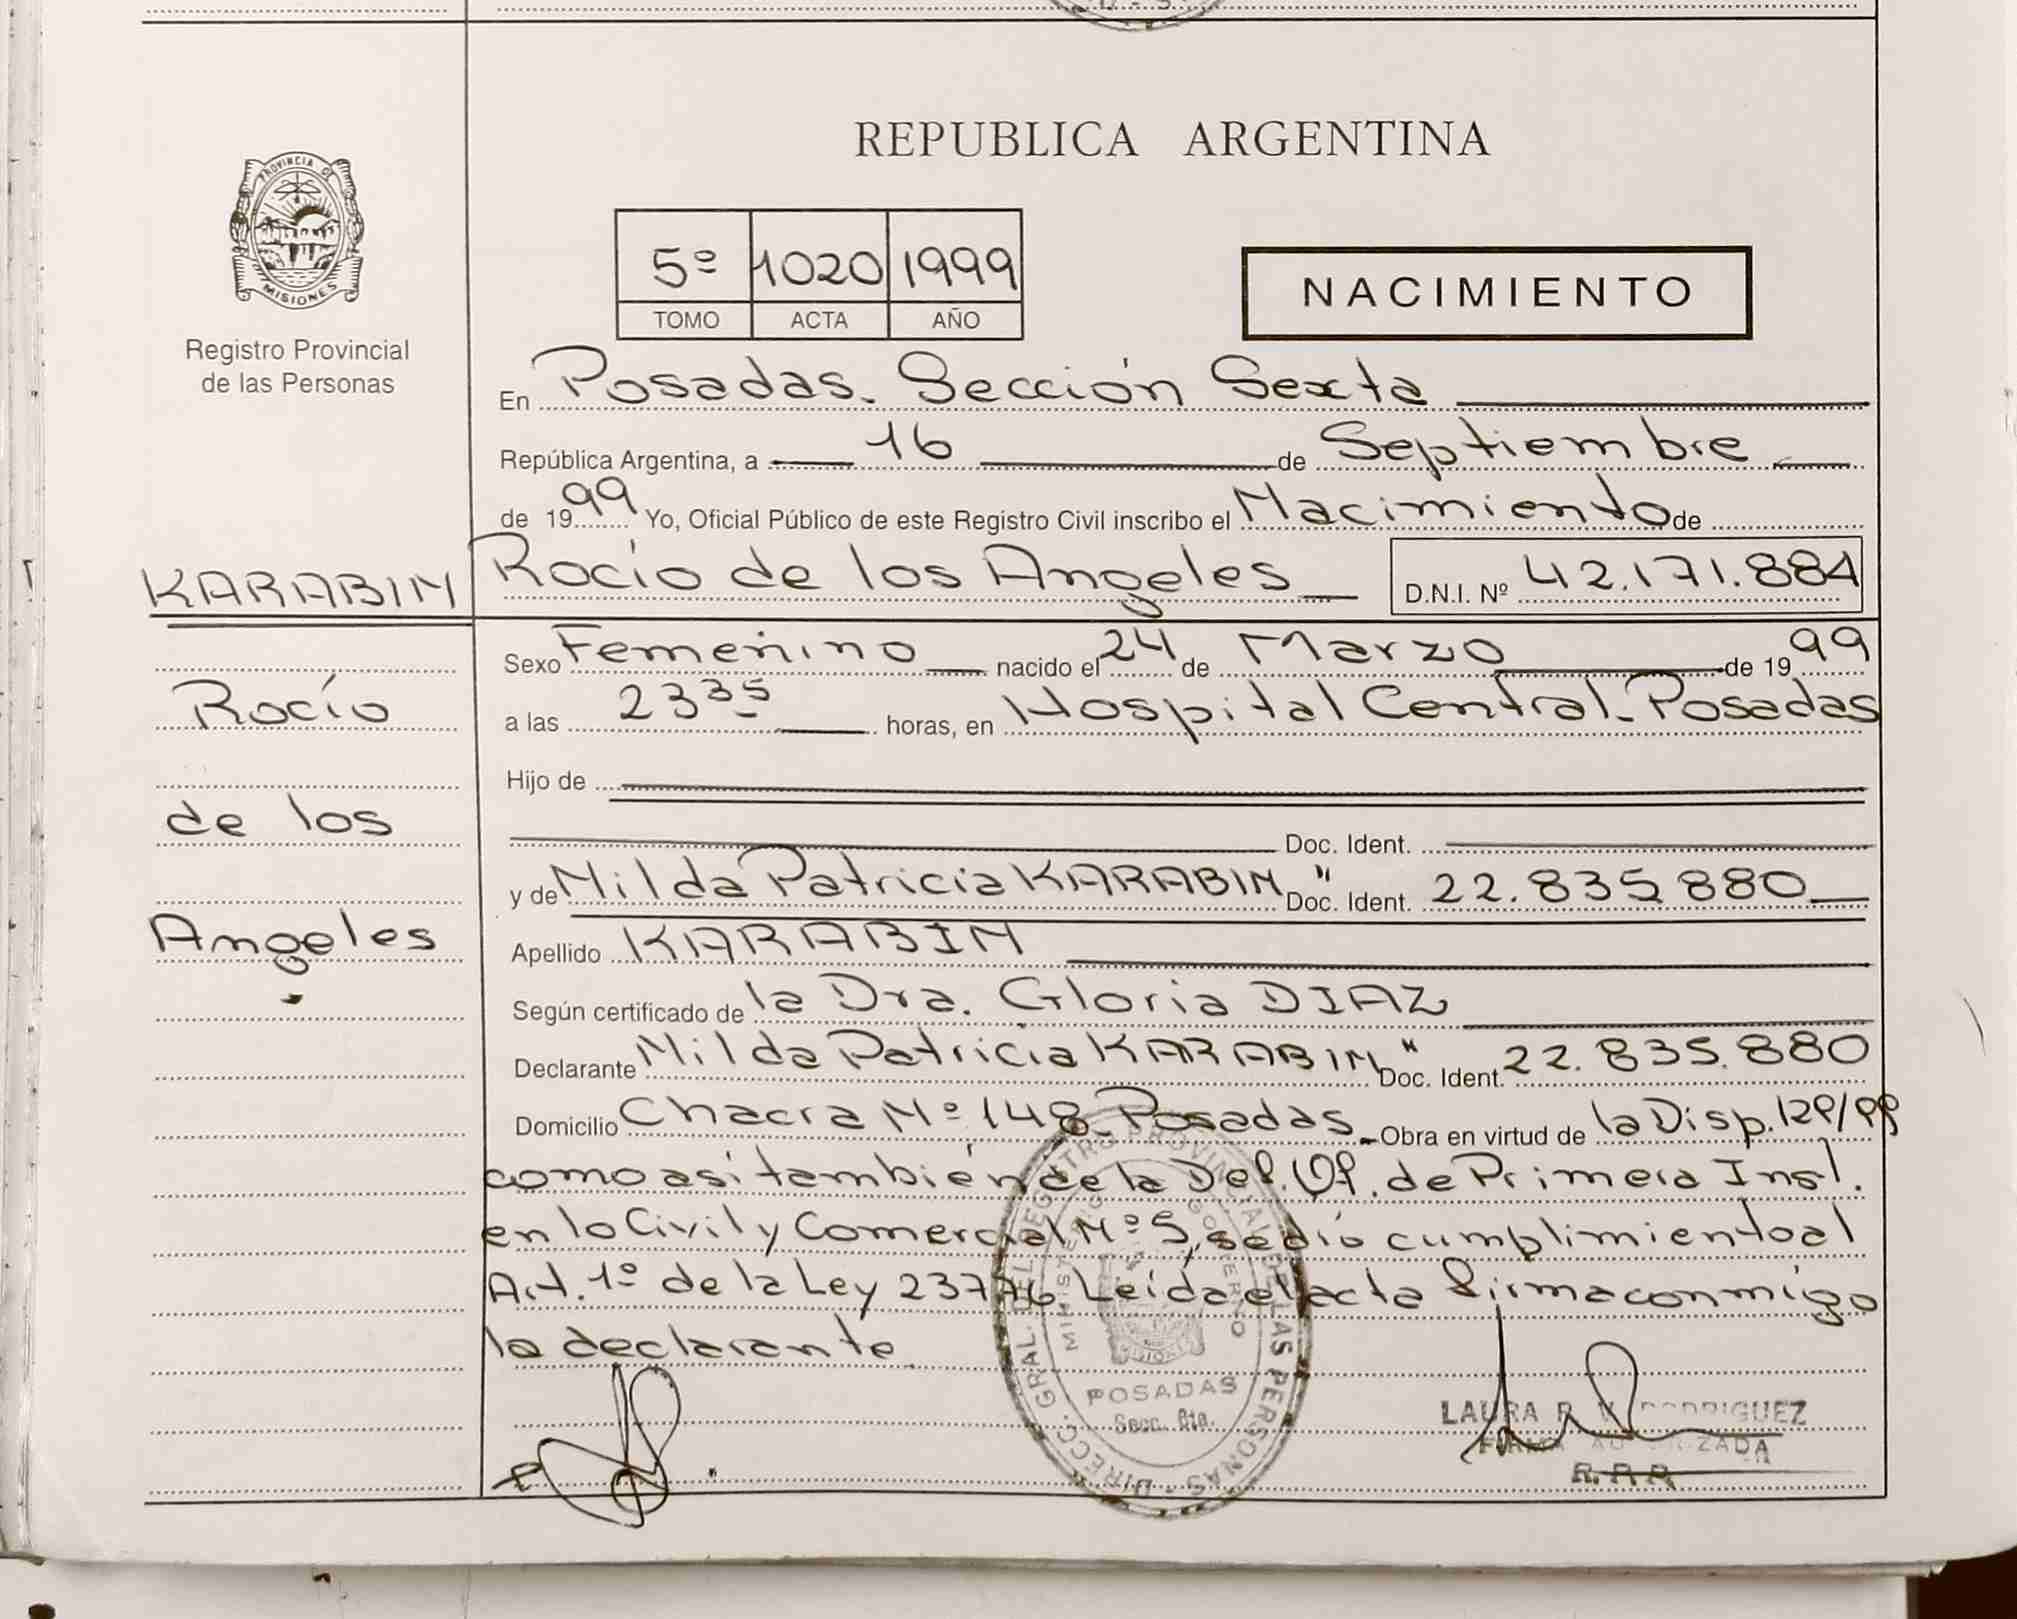 REPUBLICA ARGENTINA
PROVINCIA DE
MISIONES
Registro Provincial
de las Personas
5º 1020 1999
TOMO ACTA AÑO
NACIMIENTO
En Posadas. Sección Sexta
República Argentina, a 16 de Septiembre
de 1999 Yo, Oficial Público de este Registro Civil inscribo el Nacimiento de
Rocío de los Angeles D.N.I. Nº 42.171.884
KARABIN
Rocío
de los
Angeles
Sexo Femenino nacido el 24 de Marzo de 1999
a las 23 35 horas, en Hospital Central. Posadas
Hijo de
Doc. Ident.
y de Nilda Patricia KARABIN Doc. Ident. " 22.835.880
Apellido KARABIN
Según certificado de la Dra. Gloria DIAZ
Declarante Nilda Patricia KARABIN Doc. Ident. " 22.835.880
Domicilio Chacra Nº 148. Posadas. Obra en virtud de la Disp. 129/99
como asi también de la Def. Of. de Primera Inst.
en lo Civil y Comercial Nº 5, se dió cumplimiento al
Art. 1º de la Ley 23776 Leída el acta firma conmigo
la declarante
DIRECC. GRAL. DEL REGISTRO PROVINCIAL DE LAS PERSONAS
MINISTERIO GOBIERNO
POSADAS
Secc. 6ta.
LAURA R. RODRIGUEZ
FIRMA AUTORIZADA